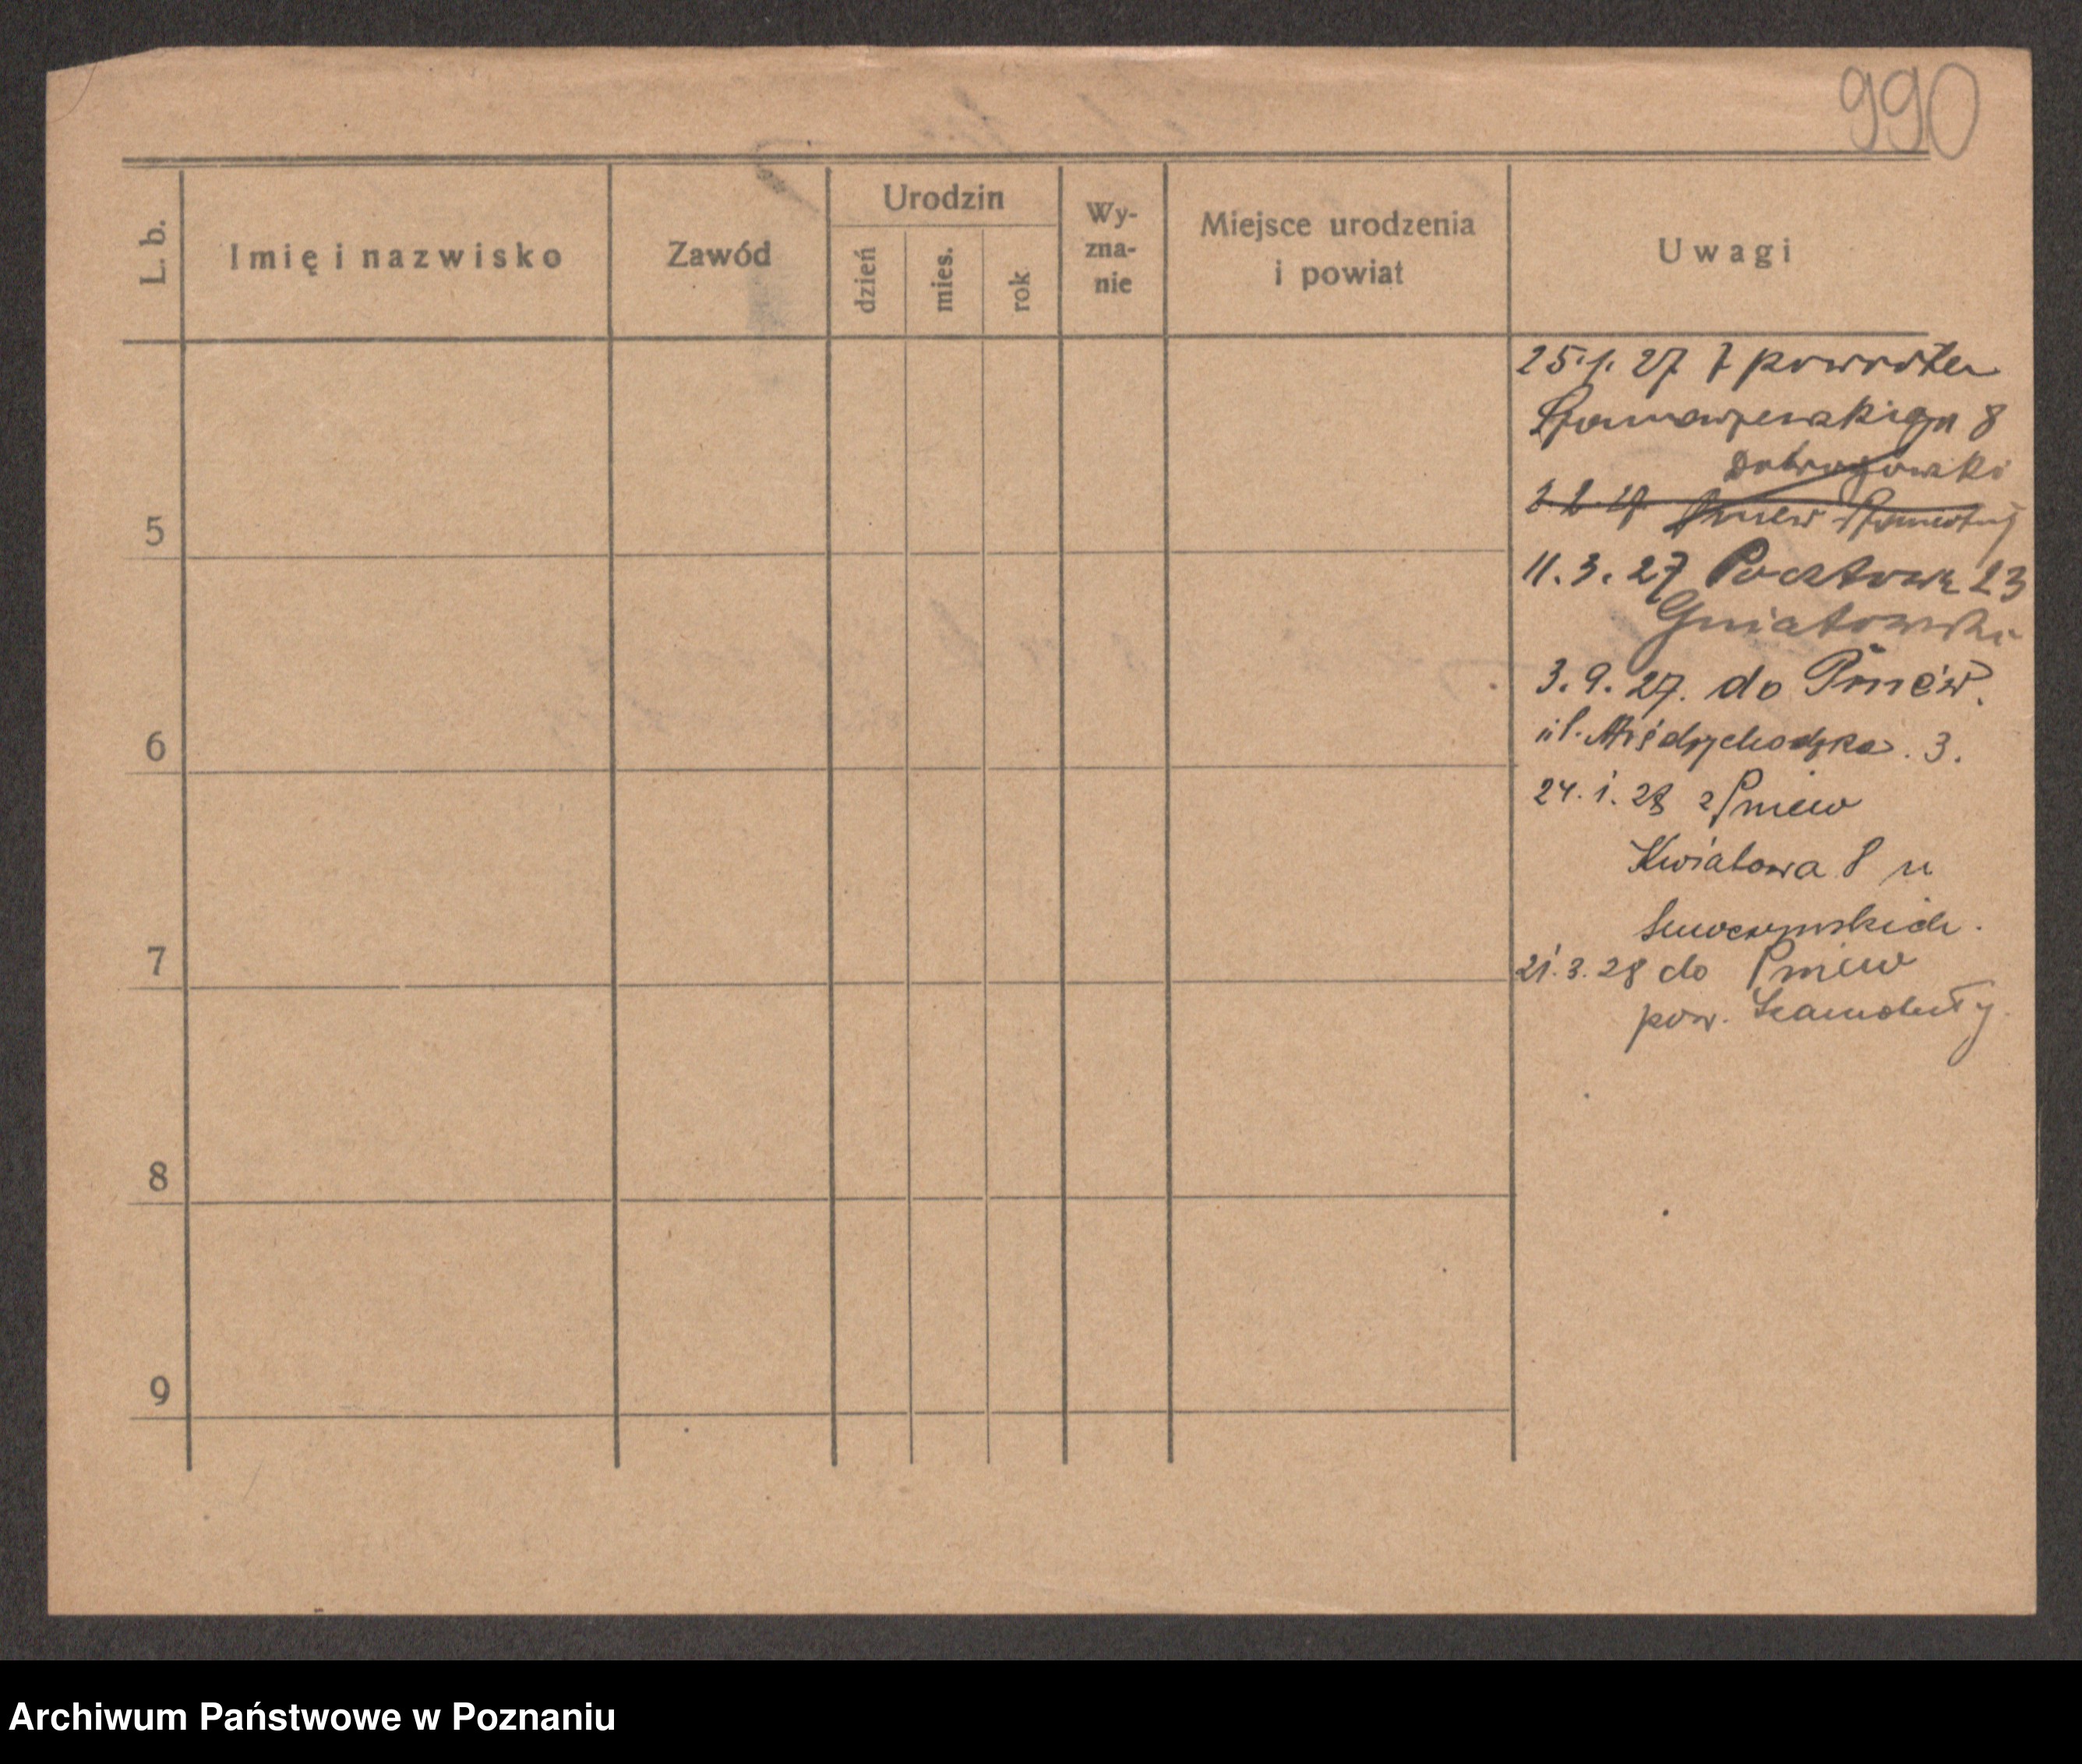 990
L. b.
Imię i nazwisko
Zawód
Urodzin
dzień
mies.
rok
Wy-
zna-
nie
Miejsce urodzenia
i powiat
Uwagi
25.1.27 z powrotem
8
Dobrogowski
2.2.27 Pniew
11.3.27 Pocztowa 23
Gniatowski
3.9.27. do Pniew.
ul. Międzychodzka. 3.
24.1.28 z Pniew
Kwiatowa 8 u
21.3.28 do Pniew
pow. Szamotuły
5
6
7
8
9
Archiwum Państwowe w Poznaniu